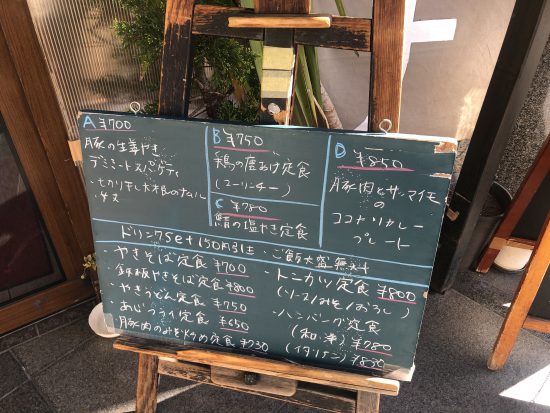 A ¥700
豚の生姜やき
デミミートスパゲティ
・切り干し大根のナムル
・
B ¥750
鶏の唐あげ定食
(ユーリンチー)
C ¥780
鯖の塩やき定食
D ¥850
豚肉とサツマイモ
の
ココナツカレー
プレート
ドリンクSet 150円引き ・ご飯大盛無料
・やきそば定食 ¥700
・鉄板やきそば定食 ¥800
・やきうどん定食 ¥750
・あじフライ定食 ¥650
・豚肉のみそ漬の定食 ¥730
・トンカツ定食 ¥800
(ソース/みそ/おろし)
・ハンバーグ定食
(和・洋) ¥780
(イタリアン) ¥830